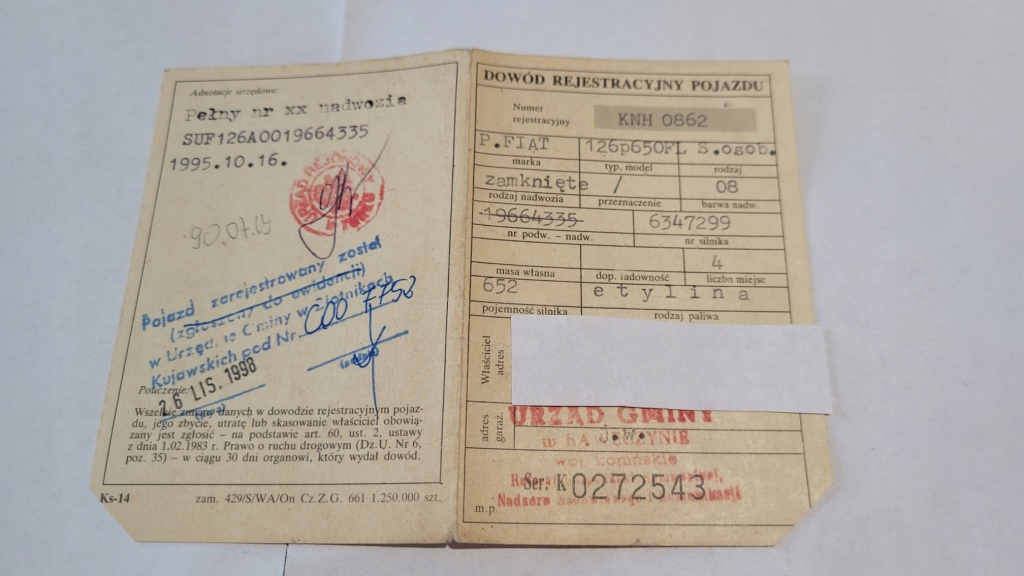 Adnotacje urzędowe:
Pełny nr xx nadwozia
SUF126A0019664335
1995.10.16.
URZĄD REJONOWY
Pojazd zarejestrowany został
(zgłoszony do ewidencji)
w Urzęd. ie Gminy w Złotnikach
Kujawskich pod Nr. COO 7758
26 LIS. 1998
Pouczenie:
Wszelkie zmiany danych w dowodzie rejestracyjnym pojaz-
du, jego zbycie, utratę lub skasowanie właściciel obowią-
zany jest zgłosić – na podstawie art. 60, ust. 2, ustawy
z dnia 1.02.1983 r. Prawo o ruchu drogowym (Dz.U. Nr 6,
poz. 35) – w ciągu 30 dni organowi, który wydał dowód.
Ks-14 zam. 429/S/WA/On Cz.Z.G. 661 1.250.000 szt.
DOWÓD REJESTRACYJNY POJAZDU
Numer
rejestracyjny KNH 0862
P.FIAT 126p650FL S.osob.
marka typ, model rodzaj
zamknięte / 08
rodzaj nadwozia przeznaczenie barwa nadw.
19664335 6347299
nr podw. – nadw. nr silnika
4
masa własna dop. ładowność liczba miejsc
652 etylina
pojemność silnika rodzaj paliwa
Właściciel
adres
adres
garaż.
URZĄD GMINY
j.w.
woj. konińskie
Ser. K 0272543
m.p.